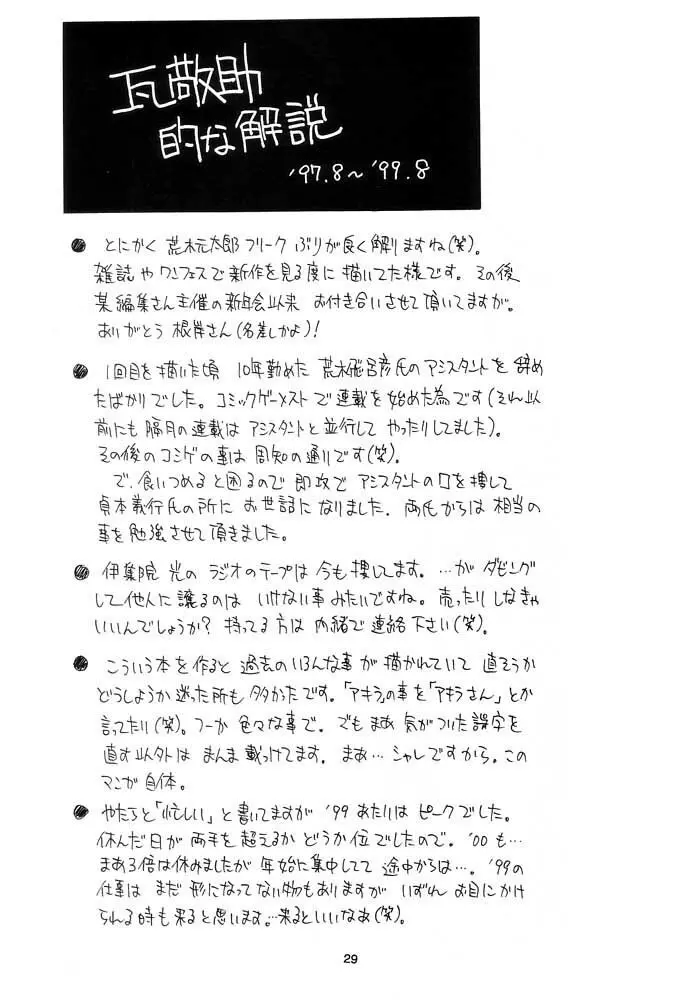 瓦敬助
的な解説
'97.8～'99.8
● とにかく 荒木元太郎フリーク ぶりが良く解りますね(笑)。
雑誌やワンフェスで新作を見る度に描いてた様です。その後
某編集さん主催の新年会以来 お付き合いさせて頂いてますが。
ありがとう 根岸さん(名差しかよ)!
● 1回目を描いた頃 10年勤めた 荒木飛呂彦氏のアシスタントを辞め
たばかりでした。コミックゲーメストで連載を始めた為です(それ以
前にも 隔月の連載は アシスタントと並行して やったりしてました)。
その後のコミゲの事は 周知の通りです(笑)。
で、食いつめると困るので 即攻で アシスタントの口を捜して
貞本義行氏の所に お世話になりました。両氏からは 相当の
事を勉強させて頂きました。
● 伊集院 光の ラジオのテープは今も捜してます。…が ダビング
して他人に譲るのは いけない事みたいですね。売ったりしなきゃ
いいんでしょうか? 持ってる方は 内緒で連絡下さい(笑)。
● こういう本を作ると 過去のいろんな事が 描かれていて 直そうか
どうしようか迷った所も多かたです。「アキラ」の事を「アキラさん」とか
言ってたり(笑)。つーか 色々な事で。でも まあ 気がついた誤字を
直す以外は まんま載っけてます。まあ… シャレですから。この
マンガ自体。
● やたらと「忙しい」と書いてますが '99あたりは ピークでした。
休んだ日が 両手を超えるか どうか位でしたので。'00も…
まあ3倍は休みましたが 年始に集中してて 途中からは…。'99の
仕事は まだ 形になってない物もありますが いずれ お目にかけ
られる時も来ると思います。…来るといいなあ(笑)。
29